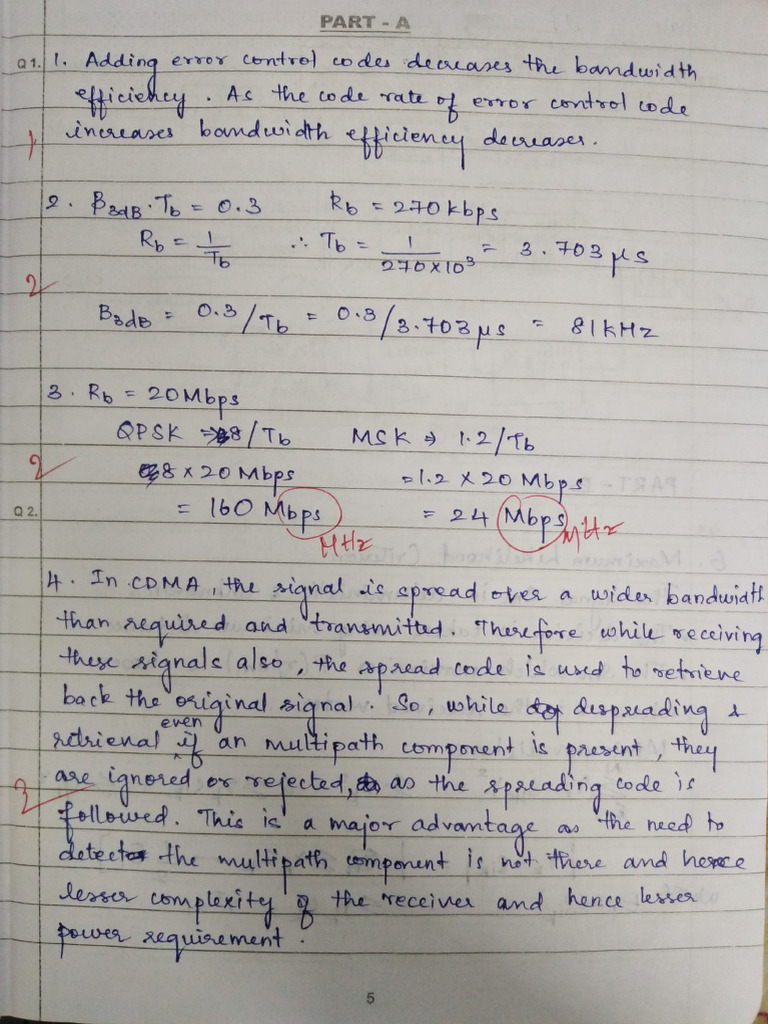 PART - A
Q1. 1. Adding error control codes decreases the bandwidth
efficiency. As the code rate of error control code
1 increases bandwidth efficiency decreases.
2. B3dB.Tb = 0.3 Rb = 270kbps
Rb = 1/Tb ∴ Tb = 1/270×10³ = 3.703 μs
2
B3dB = 0.3/Tb = 0.3/3.703 μs = 81kHz
3. Rb = 20Mbps
QPSK ⇒ 8/Tb MSK ⇒ 1.2/Tb
2 8 × 20 Mbps = 1.2 × 20 Mbps
Q2. = 160 Mbps = 24 Mbps
MHz MHz
4. In CDMA, the signal is spread over a wider bandwidth
than required and transmitted. Therefore while receiving
these signals also, the spread code is used to retrieve
back the original signal. So, while despreading &
retrienal even if an multipath component is present, they
2 are ignored or rejected, as the spreading code is
followed. This is a major advantage as the need to
detect the multipath component is not there and hence
lesser complexity of the receiver and hence lesser
power requirement.
5